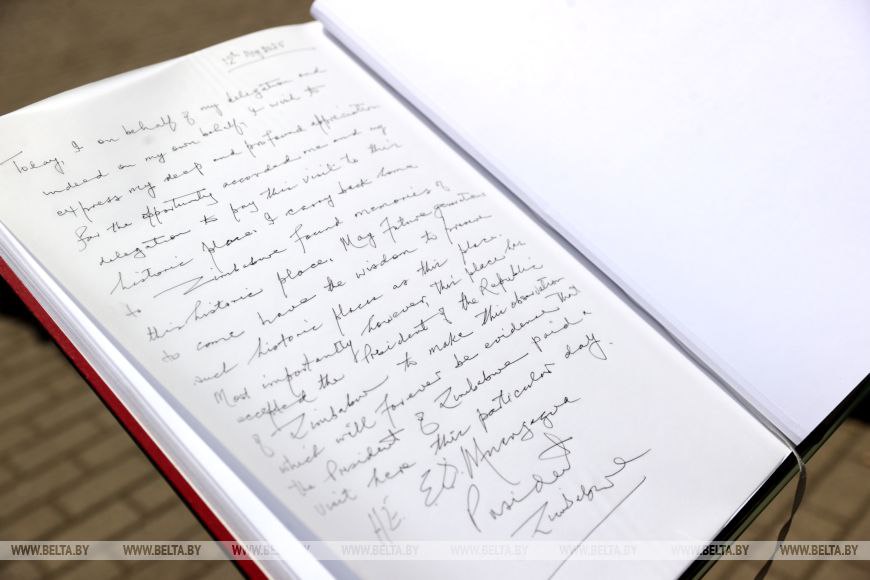 12th May 2025
Today, I on behalf of my delegation and
indeed on my own behalf, I wish to
express my deep and profound appreciation
for the opportunity accorded me and my
delegation to pay this visit to this
historic place. I carry back home
to Zimbabwe found memories of
this historic place. May future generations
to come have the wisdom to preserve
such historic place as this place.
Most importantly however, this place has
accepted the President of the Republic
of Zimbabwe to make this observation
which will forever be evidence that
the President of Zimbabwe paid a
visit here this particular day.
H.E. E.D. Mnangagwa
President
Zimbabwe
WWW.BELTA.BY WWW.BELTA.BY WWW.BELTA.BY WWW.BELTA.BY WWW.BELTA.BY WWW.BELTA.BY WWW.BELTA.BY WWW.BELTA.BY